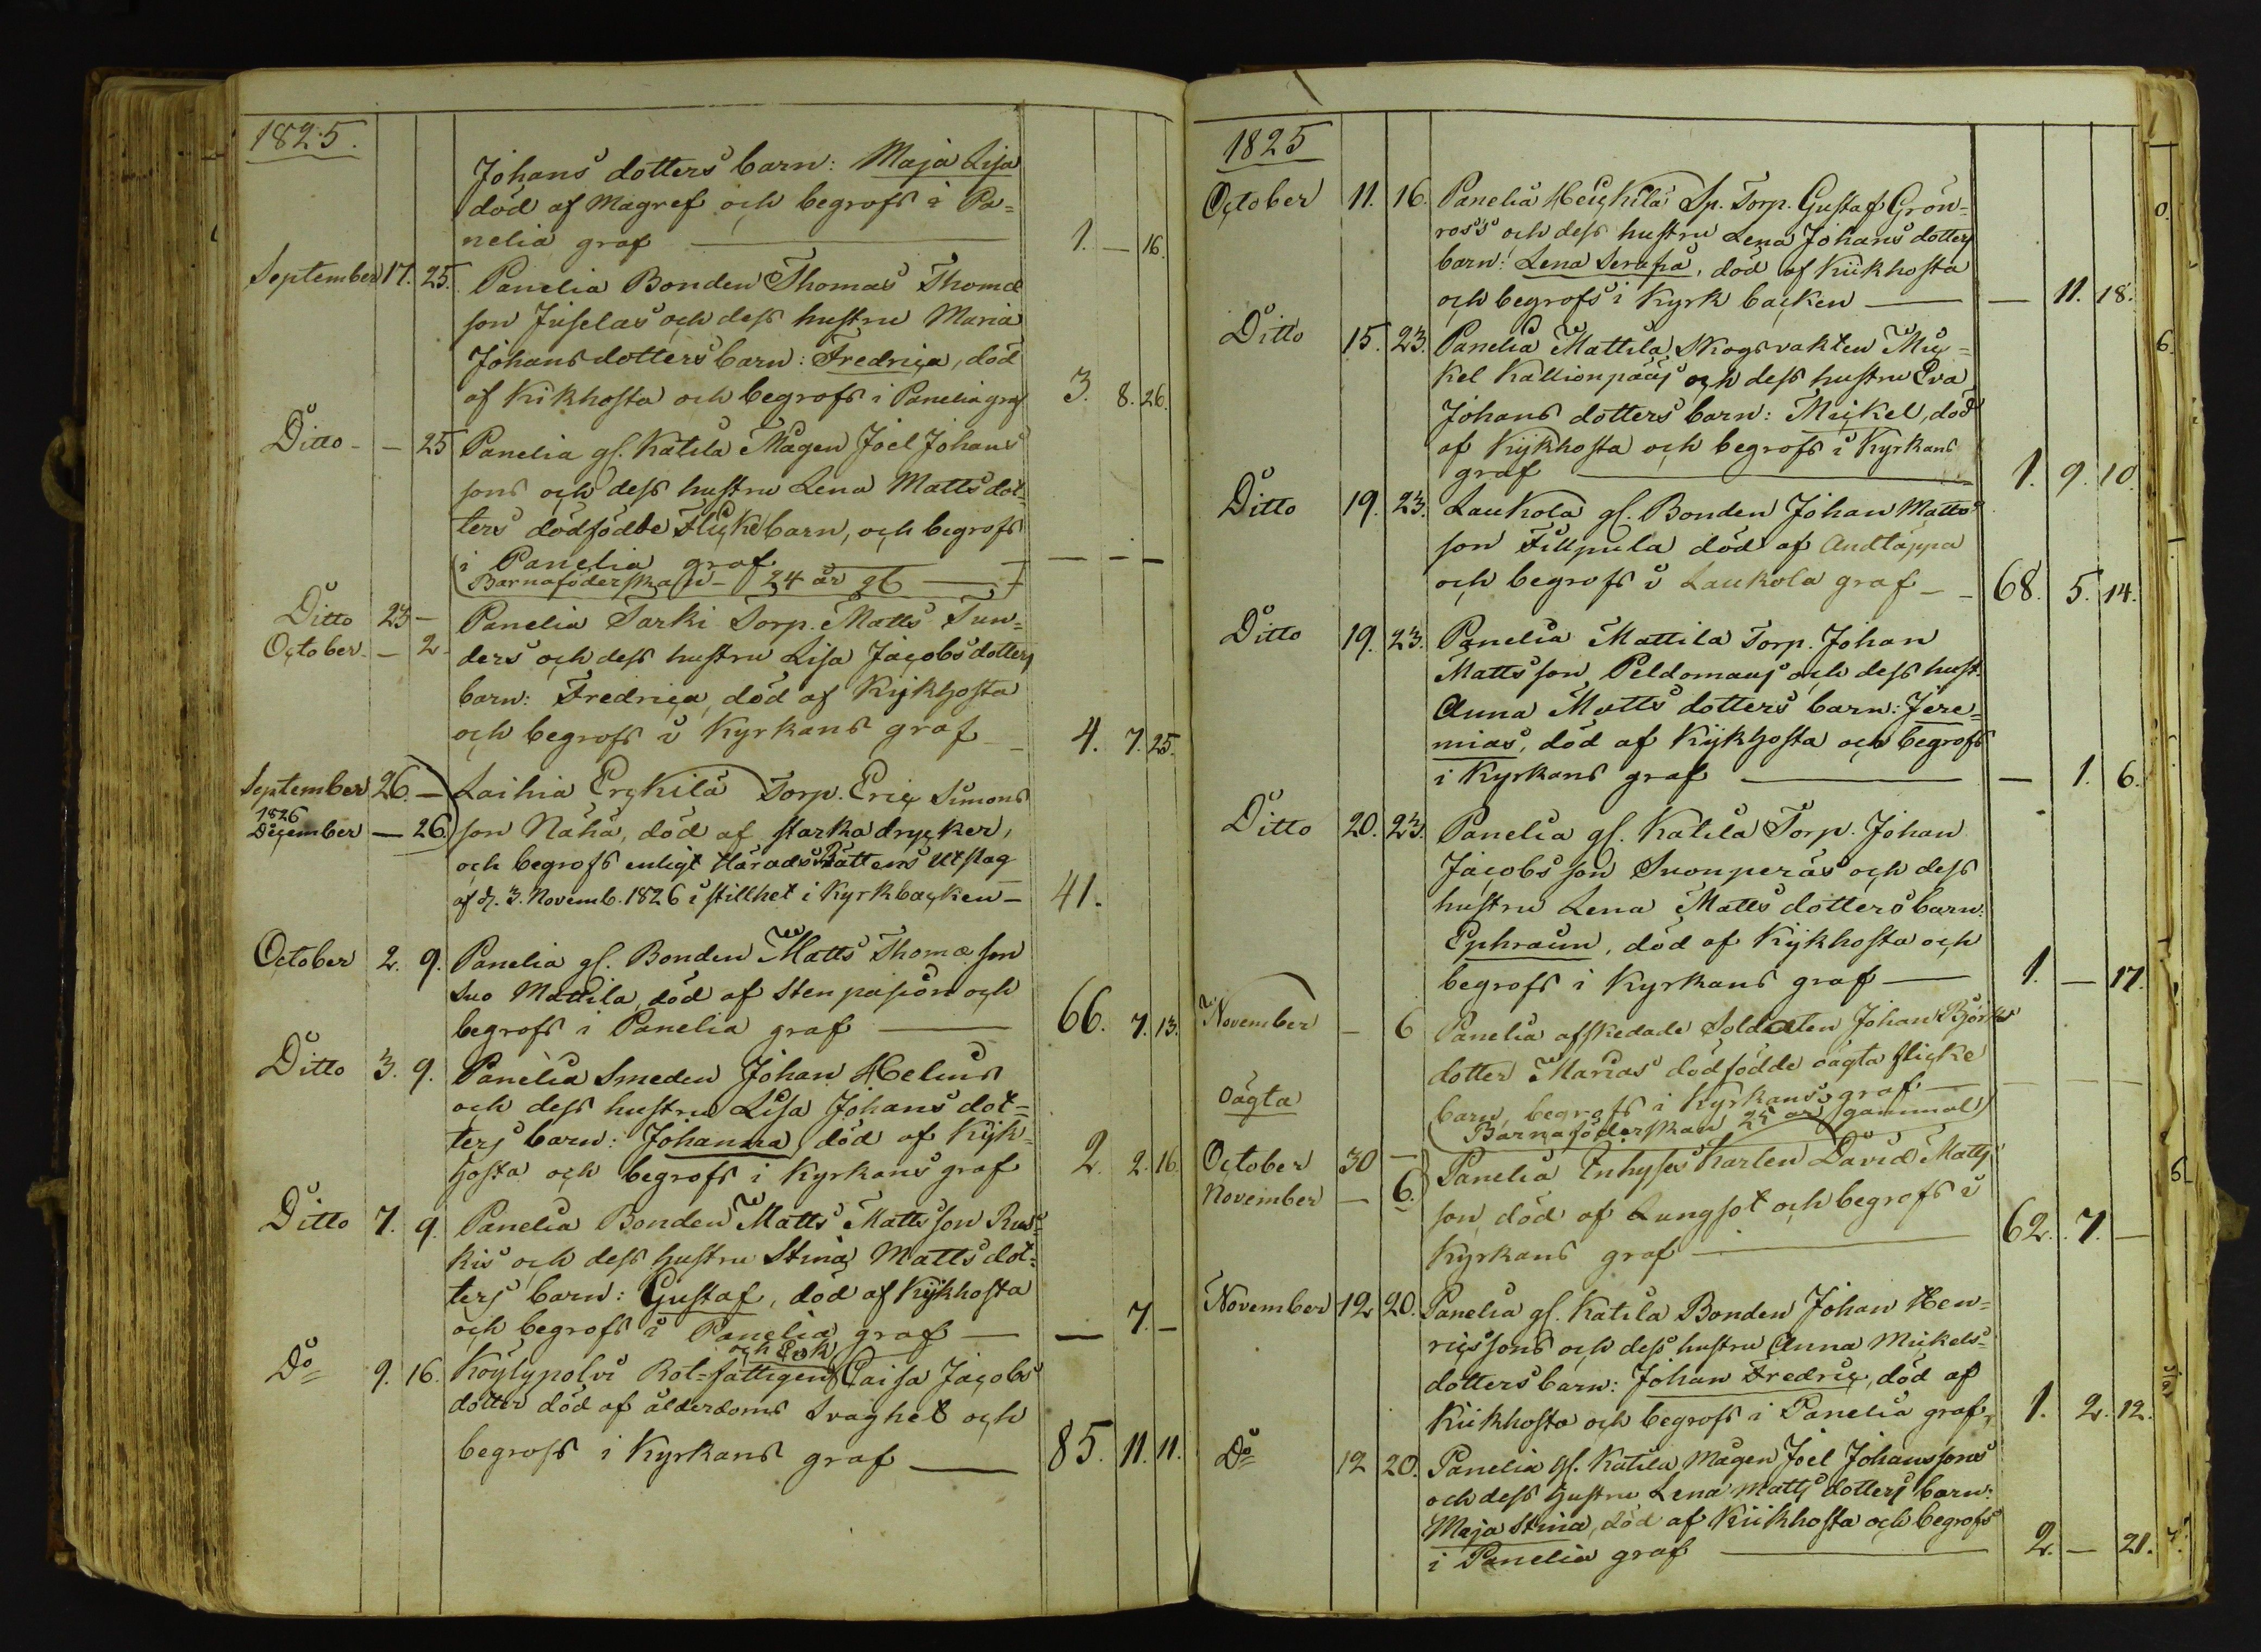 1825.
Johans dotters barn: Maja Lisa
död af Magref och begrofs i Pa=
nelia graf — 1. — 16.
September 17. 25. Panelia Bonden Thomas Thomæ
son Juselas och dess hustru Maria
Johansdotters barn: Fredrica, död
af Kikhosta och begrofs i Panelia graf 3. 8. 26.
Ditto - — 25 Panelia gl. Katila Mågen Joel Johans
sons och dess hustru Lena Matts dot=
ters dödfödde Flicke barn, och begrofs
i Panelia graf — — —
(Barnaföderskan - 24 år gl — )
Ditto 23 — Panelia Sarki Torp. Matts Sun=
October - — 2 - ders och dess hustru Lisa Jacobs dotters
barn: Fredrica, död af Kijkhosta
och begrofs i Kyrkans graf — 4. 7. 25.
September 26. — Laihia Erckilä Torp. Eric Simons
1826
December — 26. son Nähä, död af starka drycker,
och begrofs enligt HäradsRättens Utslag
af d. 3. Novemb. 1826 i stillhet i Kyrkbacken — 41.
October 2. 9. Panelia gl. Bonden Matts Thomæ son
Suo Mattila, död af Sten passion och
begrofs i Panelia graf — 66. 7. 13.
Ditto 3. 9. Panelia Smeden Johan Helins
och dess hustru Lisa Johans dot=
ters barn: Johanna, död af Kijk=
hosta och begrofs i Kyrkans graf 2. 2. 16.
Ditto 7. 9. Panelia Bonden Matts Matts son Rus=
kis och dess hustru Stina Matts dot=
ters barn: Gustaf, död af Kijkhosta
och begrofs i Panelia graf — — 7. —
och Enk
Do 9. 16. Köylypolvi Rot=fattigen Caisa Jacobs
dotter död af ålderdoms Svaghet och
begrofs i Kyrkans graf — 85. 11. 11.
1825
October 11. 16. Panelia Heickilä Sp. Torp. Gustaf Grön=
ross och dess hustru Lena Johans dotters
barn: Lena Serafia, död af Kiikhosta
och begrofs i Kyrk backen — — 11. 18.
Ditto 15. 23. Panelia Mattila Skogsvakten Mic=
kel Kallionpääs och dess hustru Eva
Johans dotters barn: Mickel, död
af Kijkhosta och begrofs i Kyrkans
graf — 1. 9. 10.
Ditto 19. 23. Laukola gl. Bonden Johan Matts
son Fillpula död af Andtäppa
och begrofs i Laukola graf — 68. 5. 14.
Ditto 19. 23. Panelia Mattila Torp. Johan
Matts son Peldomaas och dess hust.
Anna Matts dotters barn: Jere=
mias, död af Kijkhosta och begrofs
i Kyrkans graf — — 1. 6.
Ditto 20. 23. Panelia gl. Katila Torp. Johan
Jacobs son Suonperäs och dess
hustru Lena Matts dotters barn:
Ephraim, död af Kijkhosta och
begrofs i Kyrkans graf — 1. — 17.
November — 6 Panelia afskedade Soldaten Johan Björks
dotter Marias dödfödde oägta flicke
oägta barn, begrofs i Kyrkans graf — — — —
(Barnaföderskan 25 år gammal)
October 30 — Panelia Inhyses Karlen David Matts
November — 6. son död af Lungsot och begrofs i
Kyrkans graf — 62. 7. —
November 12 20. Panelia gl. Katila Bonden Johan Hen=
rics sons och dess hustru Anna Mickels=
dotters barn: Johan Fredric, död af
Kiikhosta och begrofs i Panelia graf, 1. 2. 12.
Do 12 20. Panelia gl. Katila Mågen Joel Johanssons
och dess hustru Lena Matts dotters barn:
Maja Stina, död af Kiikhosta och begrofs
i Panelia graf — 2. — 21.